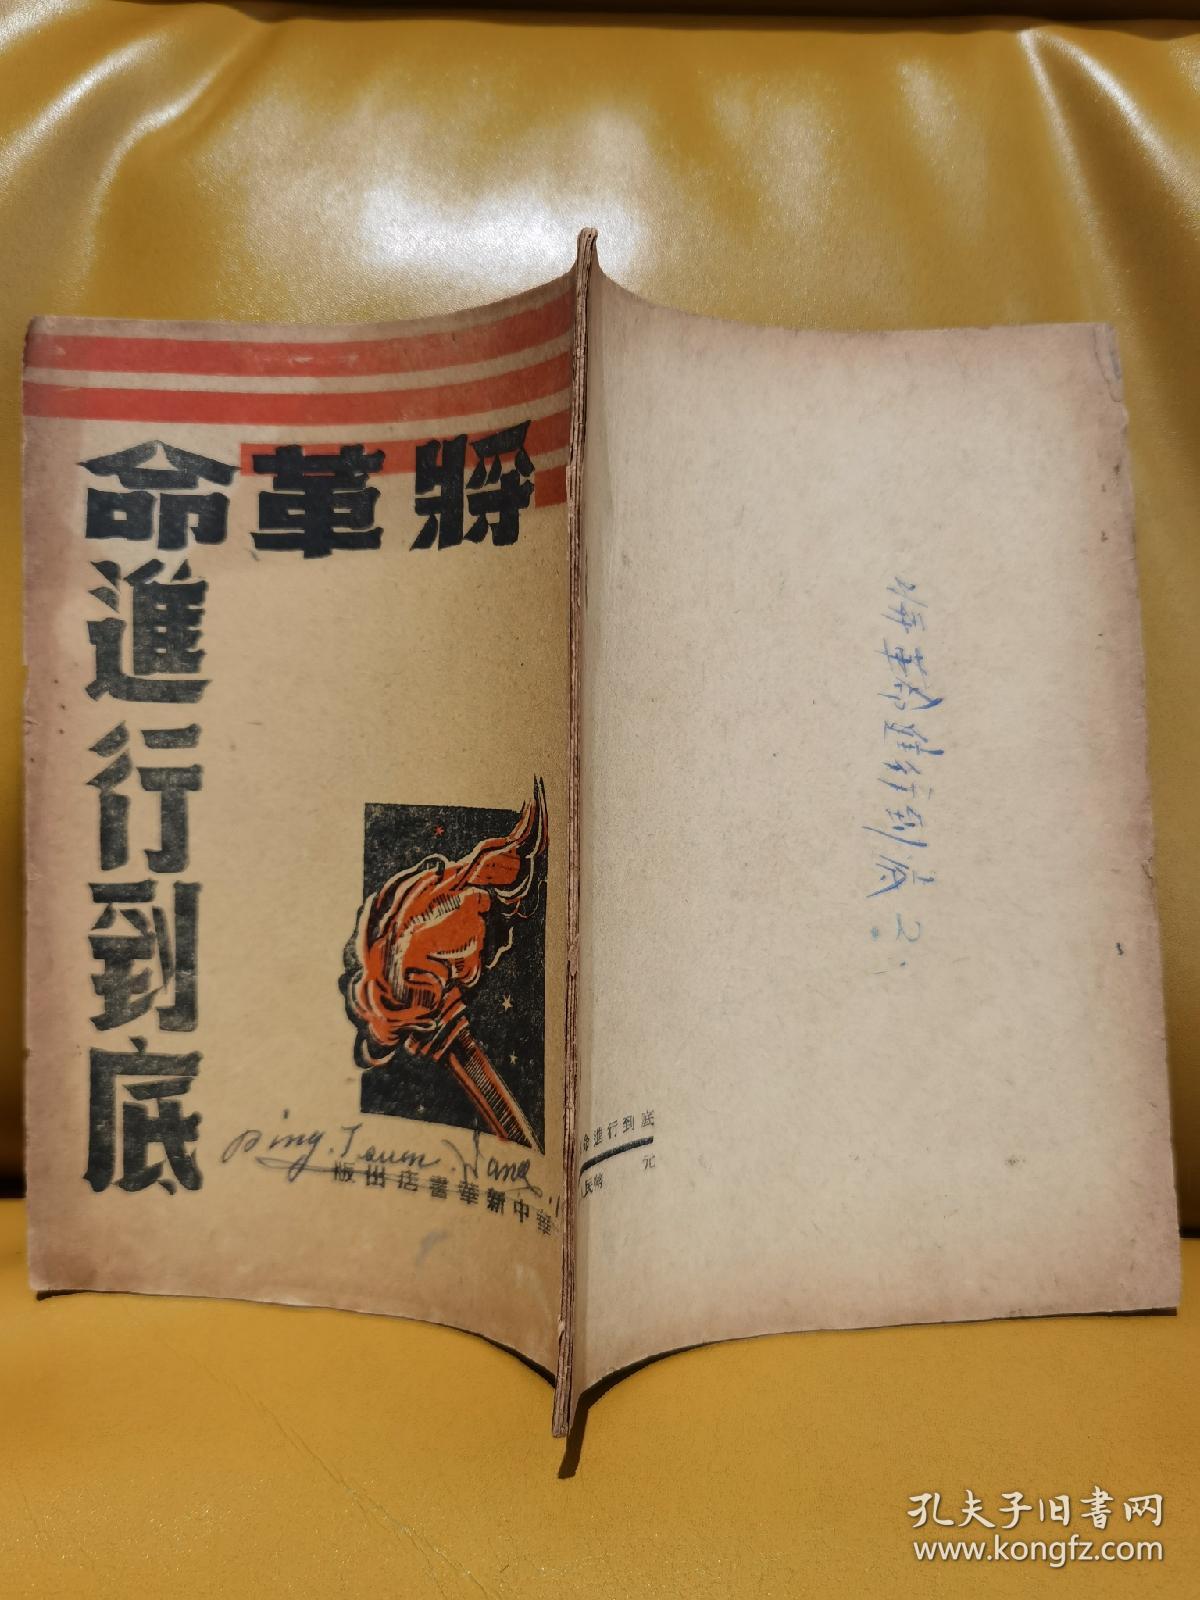 將革命
進行到底
Ping. Touen. Vang.
華中新華書店出版
将革命进行到底 2.
命進行到底
元
民幣
孔夫子旧書网
www.kongfz.com